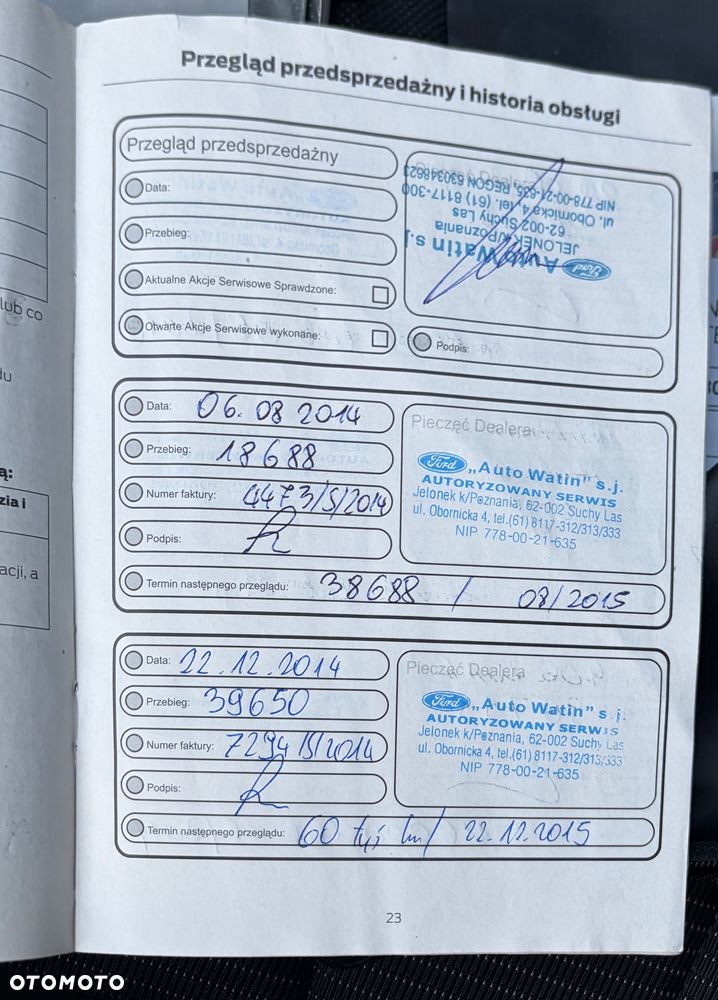 Przegląd przedsprzedażny i historia obsługi
Przegląd przedsprzedażny
Data:
Przebieg:
Aktualne Akcje Serwisowe Sprawdzone:
Otwarte Akcje Serwisowe wykonane:
Pieczęć Dealera
Ford „Auto Watin" s.j.
JELONEK k/Poznania
62-002 Suchy Las
ul. Obornicka 4, tel. (61) 8117-300
NIP 778-00-21-635, REGON 630348623
Podpis:
Data: 06.08 2014
Przebieg: 18688
Numer faktury: 4473/S/2014
Podpis:
Termin następnego przeglądu: 38688 / 08/2015
Pieczęć Dealera
Ford „Auto Watin" s.j.
AUTORYZOWANY SERWIS
Jelonek k/Poznania, 62-002 Suchy Las
ul. Obornicka 4, tel.(61) 8117-312/313/333
NIP 778-00-21-635
Data: 22.12.2014
Przebieg: 39650
Numer faktury: 7294/S/2014
Podpis:
Termin następnego przeglądu: 60 tyś km/ 22.12.2015
Pieczęć Dealera
Ford „Auto Watin" s.j.
AUTORYZOWANY SERWIS
Jelonek k/Poznania, 62-002 Suchy Las
ul. Obornicka 4, tel.(61) 8117-312/313/333
NIP 778-00-21-635
23
lub co
du
ą:
zia i
acji, a
OTOMOTO